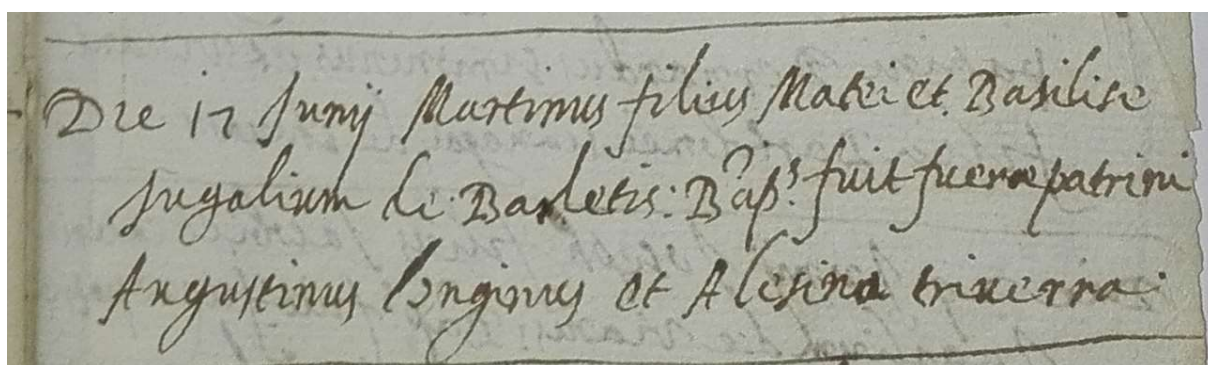 Die 17 Junij Martinus filius Matei et Basilise
Jugalium de Barletis: Bap.s fuit fuere patrini
Angustinus longinus et Alesina triverna.